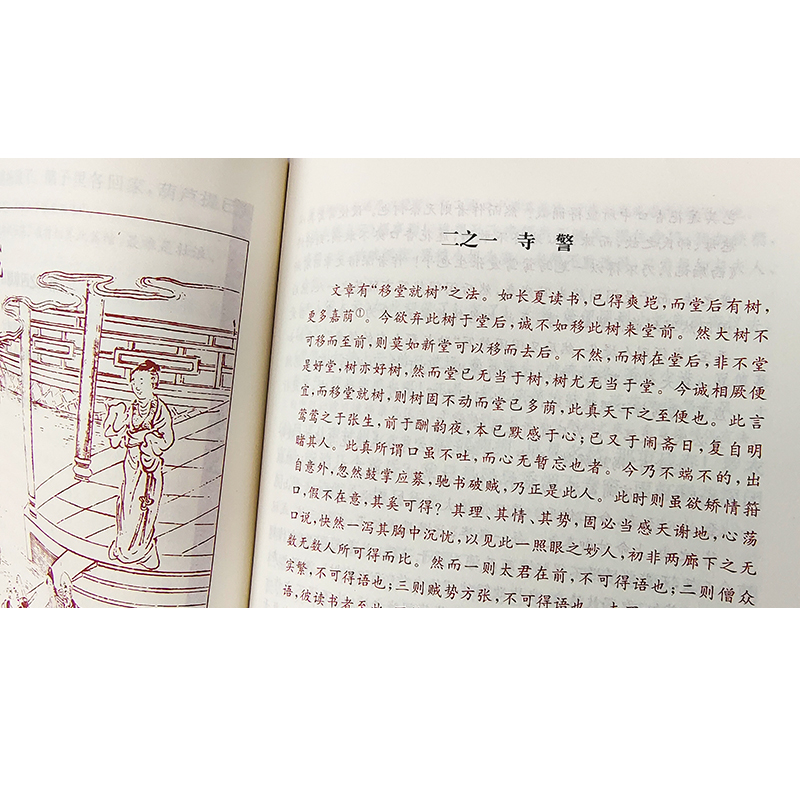 二之一 寺 警
文章有“移堂就树”之法。如长夏读书,已得爽垲,而堂后有树,
更多嘉荫①。今欲弃此树于堂后,诚不如移此树来堂前。然大树不
可移而至前,则莫如新堂可以移而去后。不然,而树在堂后,非不堂
是好堂,树亦好树,然而堂已无当于树,树尤无当于堂。今诚相厥便
宜,而移堂就树,则树固不动而堂已多荫,此真天下之至便也。此言
莺莺之于张生,前于酬韵夜,本已默感于心;已又于闹斋日,复自明
睹其人。此真所谓口虽不吐,而心无暂忘也者。今乃不端不的,出
自意外,忽然鼓掌应募,驰书破贼,乃正是此人。此时则虽欲矫情箝
口,假不在意,其奚可得?其理、其情、其势,固必当感天谢地,心荡
口说,快然一泻其胸中沉忧,以见此一照眼之妙人,初非两廊下之无
数无数人所可得而比。然而一则太君在前,不可得语也;二则僧众
实繁,不可得语也;三则贼势方张,不可得语也。
语,彼读书者至此